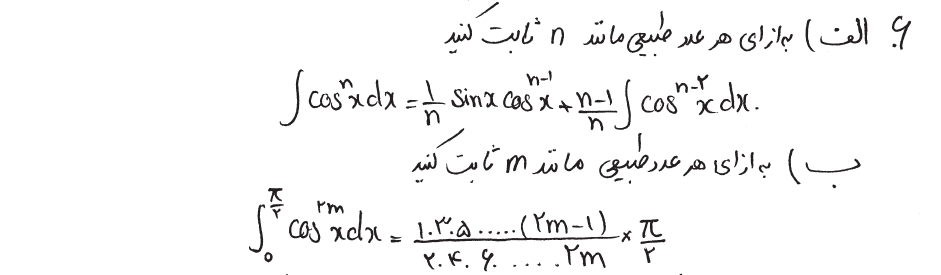 ۶. الف) به ازای هر عدد طبیعی مانند n ثابت کنید
∫cosⁿx dx = ۱/n sinx cosⁿ⁻¹x + n-۱/n ∫cosⁿ⁻²x dx.
ب) به ازای هر عدد طبیعی مانند m ثابت کنید
∫₀^(π/۲) cos^(۲m) x dx = ۱.۳.۵.....(۲m-۱) / ۲.۴.۶.....۲m × π/۲